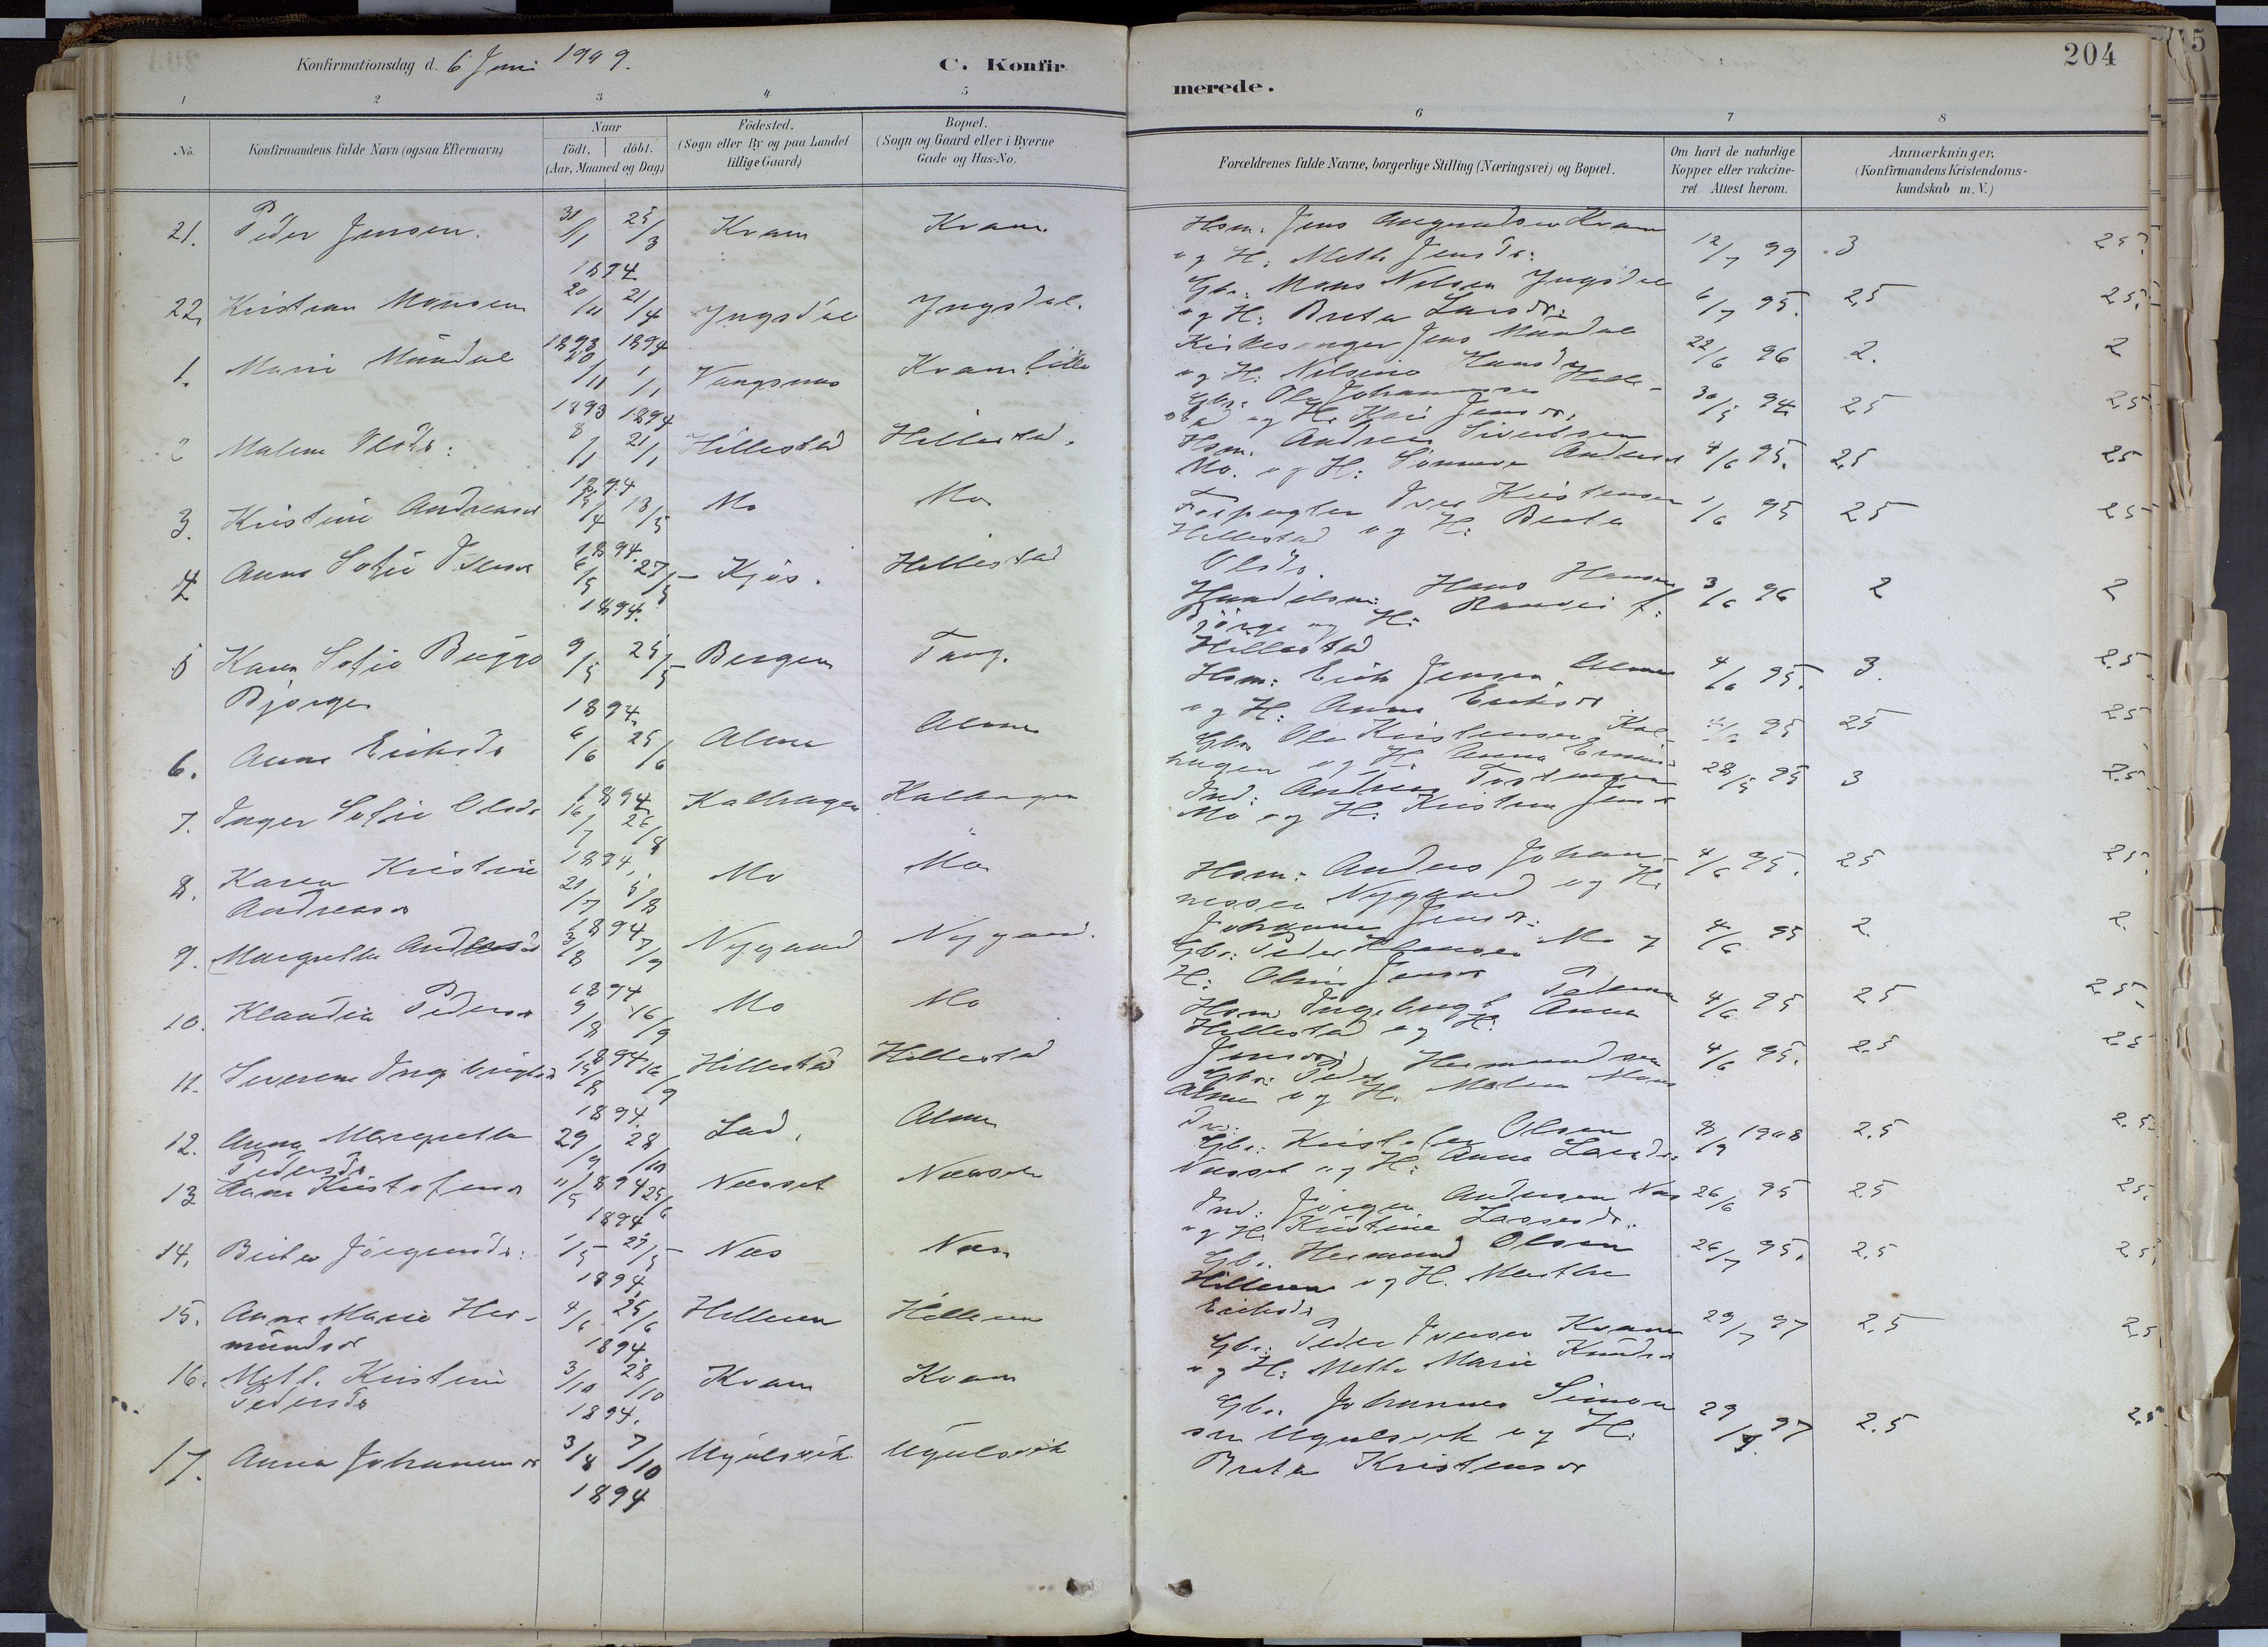 Konfirmationsdag d. 6 Juni 1909.
C. Konfirmerede.
204
1 2 3 4 5 6 7 8
No.
Konfirmandens fulde Navn (ogsaa Efternavn)
Naar
födt. döbt.
(Aar, Maaned og Dag)
Födested.
(Sogn eller By og paa Landet
tillige Gaard)
Bopæl.
(Sogn og Gaard eller i Byerne
Gade og Hus-No.
Forældrenes fulde Navne, borgerlige Stilling (Næringsvei) og Bopæl.
Om havt de naturlige
Kopper eller vakcine-
ret. Attest herom.
Anmærkninger,
(Konfirmandens Kristendoms-
kundskab m. V.)
21. Peder Jensen. 31/1 25/3 1894 Kvam Kvam.
Hsm. Jens Kvam
og H: Mette Jensdr: 12/7 99 3 25.
22. Kristian Monsen 20/11 1893 21/4 1894 Yngsdal Yngsdal.
Gbr. Mons Nilsen Yngsdal
og H: Breta Larsdr: 6/7 95. 25 25.
1. Marie Mundal 20/11 1893 1/1 1894 Vangsnes Kvam lille
Kirkesanger Jens Mundal
og H: Nilsine Hansdr 22/6 96 2. 2
2 Malene Olsdr: 8/1 21/1 1894 Hillestad Hillestad.
Gbr. Ole Johannesen Hille-
stad og H. Kari Jensdr. 30/5 94. 25 25
3. Kristine Andreasdr 15/4 13/5 1894. Mo Mo
Hsm. Andreas Sivertsen
Mo. og H: Andersdr 4/6 95. 25 25
4 Anna Sofie Iversdr 6/5 27/5 1894. Kjös. Hillestad
Forpagter Iver Kristensen
Hillestad og H: Berta
Olsdr. 1/6 95 25 25
5 Kaia Sofie Bugge
Bjørge 9/5 25/5 1894. Bergen Tang.
Handelsm: Hans Hansen
Bjørge og H: Ranvei f:
Hillestad 3/6 96 2 2
6. Anna Eriksdr 6/6 25/6 1894 Alme Alme
Hsm: Erik Jensen Alme
og H: Anna Eriksdr 4/6 95. 3. 2.5
7. Inger Sofie Olsdr 16/7 26/8 1894, Kalhagen Kalhagen
Gbr. Ole Kristensen Kal-
hagen og H. Anna 95 25 25
8. Karen Kristine
Andreasdr 21/7 5/8 1894 Mo Mo
Ind: Andreas
Mo og H. Kristine Jensdr 28/5 95 3 2.5
9. Margrethe Andersdr 3/8 7/9 1894 Nygaard Nygaard.
Hsm: Anders Johan-
nessen Nygaard og H.
Johanne Jensdr: 4/6 95. 25 25.
10. Klaudia Pedersdr 9/8 16/9 1894 Mo Mo
Gbr: Peder Mo og
H: Oline Jensdr 4/6 95 2. 2.
11. Severine Ingebrigtsdr 15/8 16/9 1894. Hillestad Hillestad
Hsm Ingebrigt Pedersen
Hillestad og H. Anna
Jensdr 4/6 95 25 25.
12. Anna Margrethe
Pedersdr 29/9 28/10 1894 Lad. Alme
Gbr: Peder Hermundsen
Alme og H. Malene Mons
dr: 4/6 95. 2.5 2.5
13 Anna Kristofersdr 11/5 25/6 1894 Næsset Næsset
Gbr: Kristofer Olsen
Næsset og H: Anna Larsdr: 8/9 1908 2.5 2.5
14. Brita Jörgensdr: 1/5 27/5 1894. Næs Næs
Ind: Jörgen Andersen Næs
og H. Kristine Lassesdr. 26/6 95 2.5 25.
15. Anna Marie Her-
mundsdr 4/6 25/6 1894. Hilleren Hilleren
Gbr. Hermund Olsen
Hilleren og H. Marthe
Eriksdr 26/7 95. 2.5 2.5
16. Mett. Kristine
Pedersdr 3/10 28/10 1894. Kvam Kvam
Gbr. Peder Iversen Kvam
og H: Mette Marie Knudsdr 29/7 97 2.5 2.5
17. Anna Johannesdr 3/8 7/10 1894 Ugulsvik Ugulsvik
Gbr. Johannes Simon
sen Ugulsvik og H.
Breta Kristensdr 29/7 97 2.5 2.5